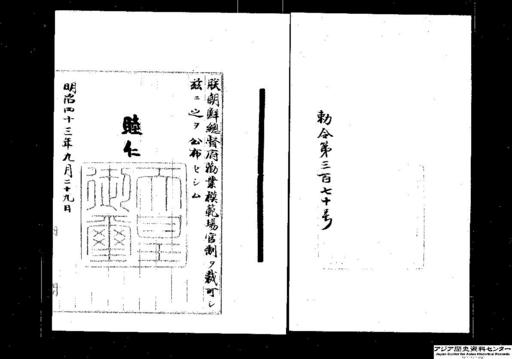 勅令第三百七十号
朕朝鮮總督府勸業模範場官制ヲ裁可シ
茲ニ之ヲ公布セシム
睦仁
天皇御璽
明治四十三年九月二十九日
アジア歴史資料センター
Japan Center for Asian Historical Records